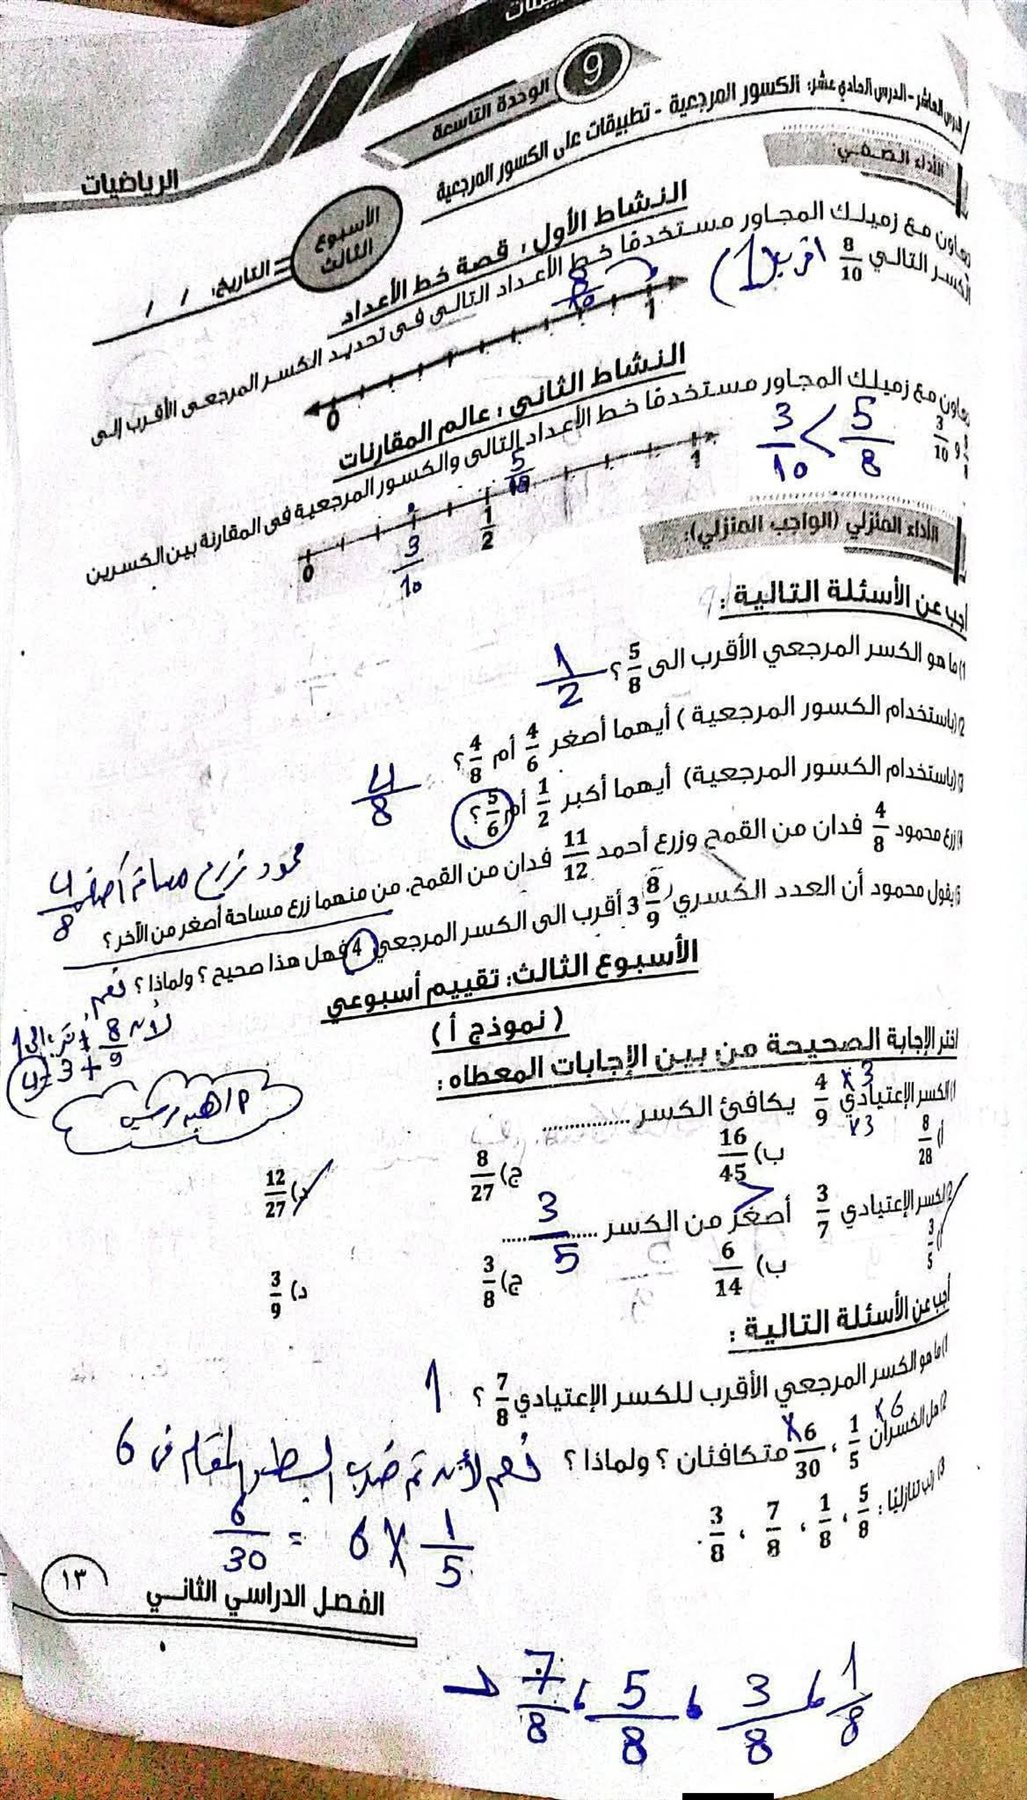 9
الوحدة التاسعة
الرياضيات
الدرس العاشر - الدرس الحادي عشر: الكسور المرجعية - تطبيقات على الكسور المرجعية
الأداء الصفي:
الأسبوع الثالث
التاريخ: / /
النشاط الأول: قصة خط الأعداد
تعاون مع زميلك المجاور مستخدما خط الأعداد التالى فى تحديد الكسر المرجعى الأقرب إلى
الكسر التالي 8/10 أقرب 1
8/10
0 1
النشاط الثانى: عالم المقارنات
تعاون مع زميلك المجاور مستخدما خط الأعداد التالى والكسور المرجعية فى المقارنة بين الكسرين
و 3/10
3/10 < 5/8
5/10
0 3/10 1/2 1
الأداء المنزلي (الواجب المنزلي):
أجب عن الأسئلة التالية:
1) ما هو الكسر المرجعي الأقرب الى 5/8 ؟ 1/2
2) (باستخدام الكسور المرجعية) أيهما أصغر 4/6 أم 4/8 ؟ 4/8
3) (باستخدام الكسور المرجعية) أيهما أكبر 1/2 أم 5/6 ؟
4) زرع محمود 4/8 فدان من القمح وزرع أحمد 11/12 فدان من القمح. من منهما زرع مساحة أصغر من الآخر؟
محمود زرع مساحة أصغر 4/8
5) يقول محمود أن العدد الكسري 3 8/9 أقرب الى الكسر المرجعي 4 فهل هذا صحيح؟ ولماذا؟ نعم
لأنه 8/9 أقرب الى 1
4 = 3 +
الأسبوع الثالث: تقييم أسبوعي
(نموذج أ)
اختر الإجابة الصحيحة من بين الإجابات المعطاه:
1) الكسر الإعتيادي 4/9 يكافئ الكسر ................
×3
×3
أ) 8/28 ب) 16/45 ج) 8/27 د) 12/27
2) الكسر الإعتيادي 3/7 أصغر من الكسر ................ 3/5
أ) 3/5 ب) 6/14 ج) 3/8 د) 3/9
أجب عن الأسئلة التالية:
1) ما هو الكسر المرجعي الأقرب للكسر الإعتيادي 7/8 ؟ 1
2) هل الكسران 1/5 ، 6/30 متكافئان؟ ولماذا؟ نعم لأنه تم ضرب البسط والمقام فى 6
×6
6/30 = 6 × 1/5
3) رتب تنازليًا: 5/8 ، 1/8 ، 7/8 ، 3/8 .
الفصل الدراسي الثاني
١٣
1/8 ، 3/8 ، 5/8 ، 7/8